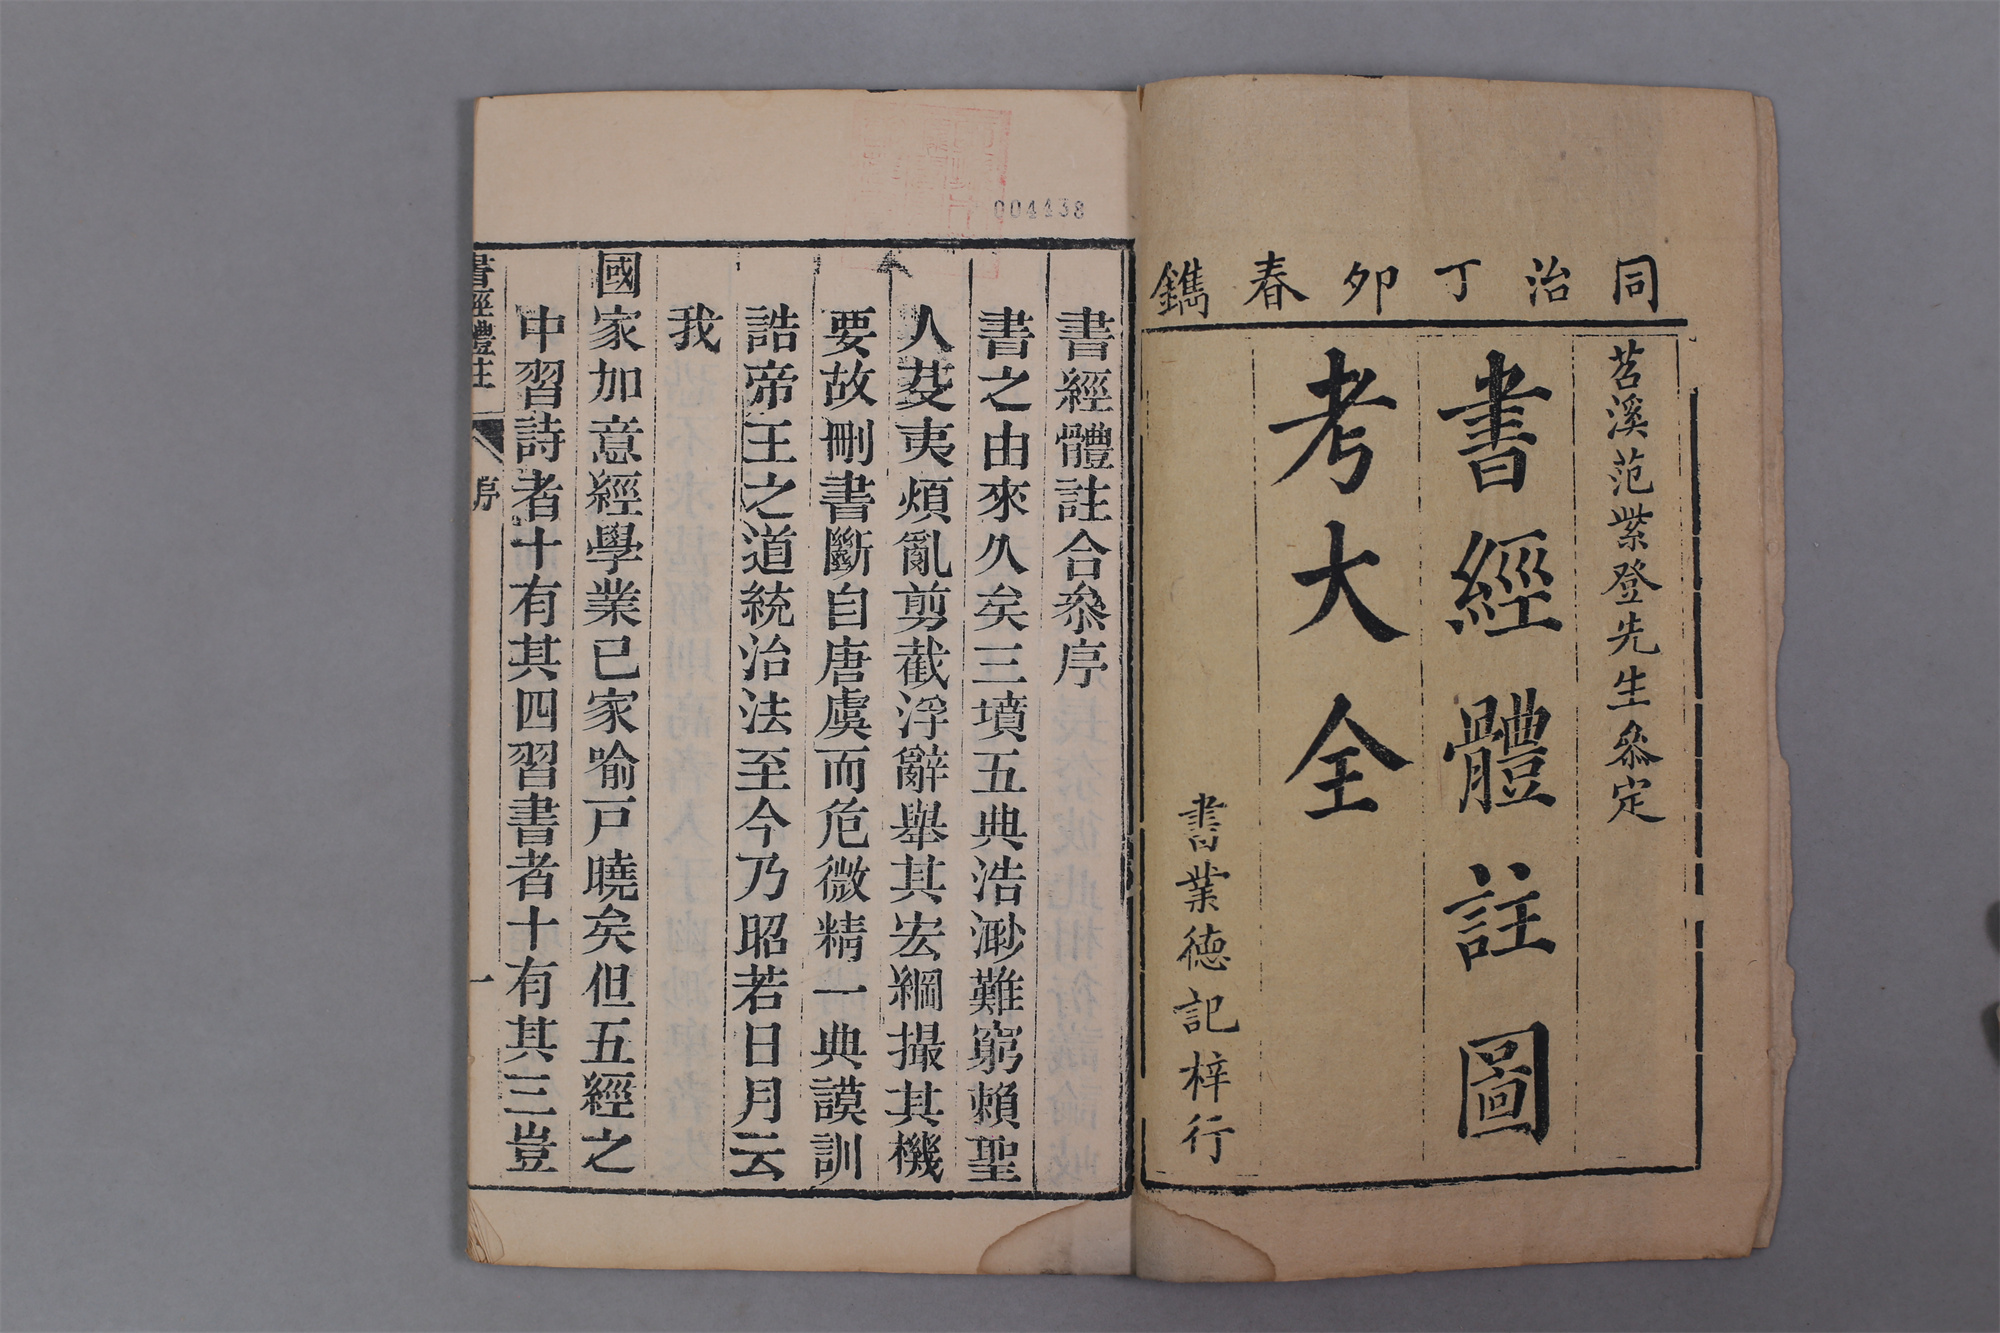 同治丁卯春鐫
苕溪范紫登先生叅定
書經體註圖
考大全
書業德記梓行
004438
書經體註合叅序
書之由來久矣三墳五典浩渺難窮賴聖
人芟夷煩亂剪截浮辭舉其宏綱撮其機
要故刪書斷自唐虞而危微精一典謨訓
誥帝王之道統治法至今乃昭若日月云
我
國家加意經學業已家喻戸曉矣但五經之
中習詩者十有其四習書者十有其三豈
書經體註 序 一